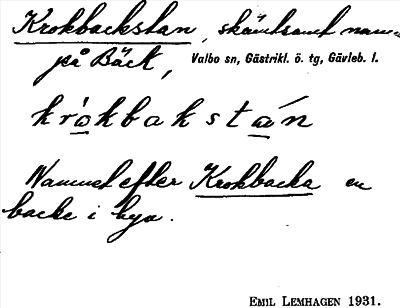 Krokbackstan, skämtsamt namn
på Bäck, Valbo sn, Gästrikl. ö. tg, Gävleb. l.
kròkbakstán
Namnet efter Krokbacka en
backe i byn.
EMIL LEMHAGEN 1931.